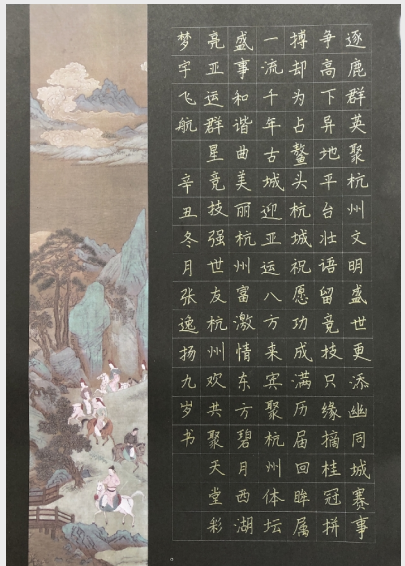 逐鹿群英聚杭州文明盛世更添幽同城赛事
争高下异地平台壮语留竞技只缘摘桂冠拼
搏却为占鳌头杭城祝愿功成满历届回眸属
一流千年古城迎亚运八方来宾聚杭州体坛
盛事和谐曲美丽杭州富激情东方碧月西湖
亮亚运群星竞技强世友杭州欢共聚天堂彩
梦宇飞航 辛丑冬月张逸扬九岁书